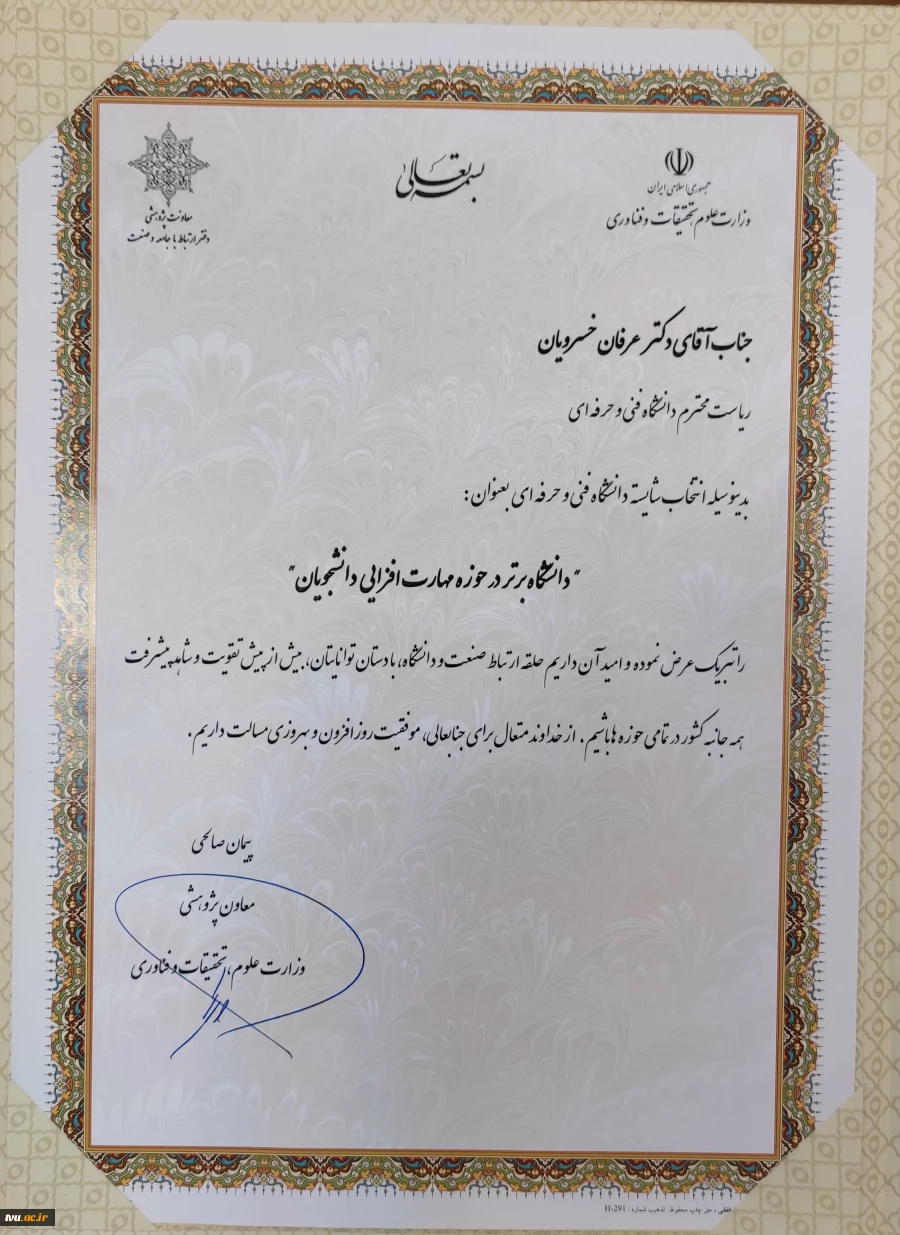 بسمه تعالی
جمهوری اسلامی ایران
وزارت علوم تحقیقات و فناوری
معاونت پژوهشی
دفتر ارتباط با جامعه و صنعت
جناب آقای دکتر عرفان خسرویان
ریاست محترم دانشگاه فنی و حرفه ای
بدینوسیله انتخاب شایسته دانشگاه فنی و حرفه ای بعنوان:
"دانشگاه برتر در حوزه مهارت افزایی دانشجویان"
را تبریک عرض نموده و امید آن داریم حلقه ارتباط صنعت و دانشگاه، با دستان توانایتان، بیش از پیش تقویت و شاهد پیشرفت
همه جانبه کشور در تمامی حوزه ها باشیم. از خداوند متعال برای جنابعالی، موفقیت روز افزون و بهروزی مسالت داریم.
پیمان صالحی
معاون پژوهشی
وزارت علوم، تحقیقات و فناوری
، حق چاپ محفوظ. تذهیب شماره: H-291
tvu.ac.ir